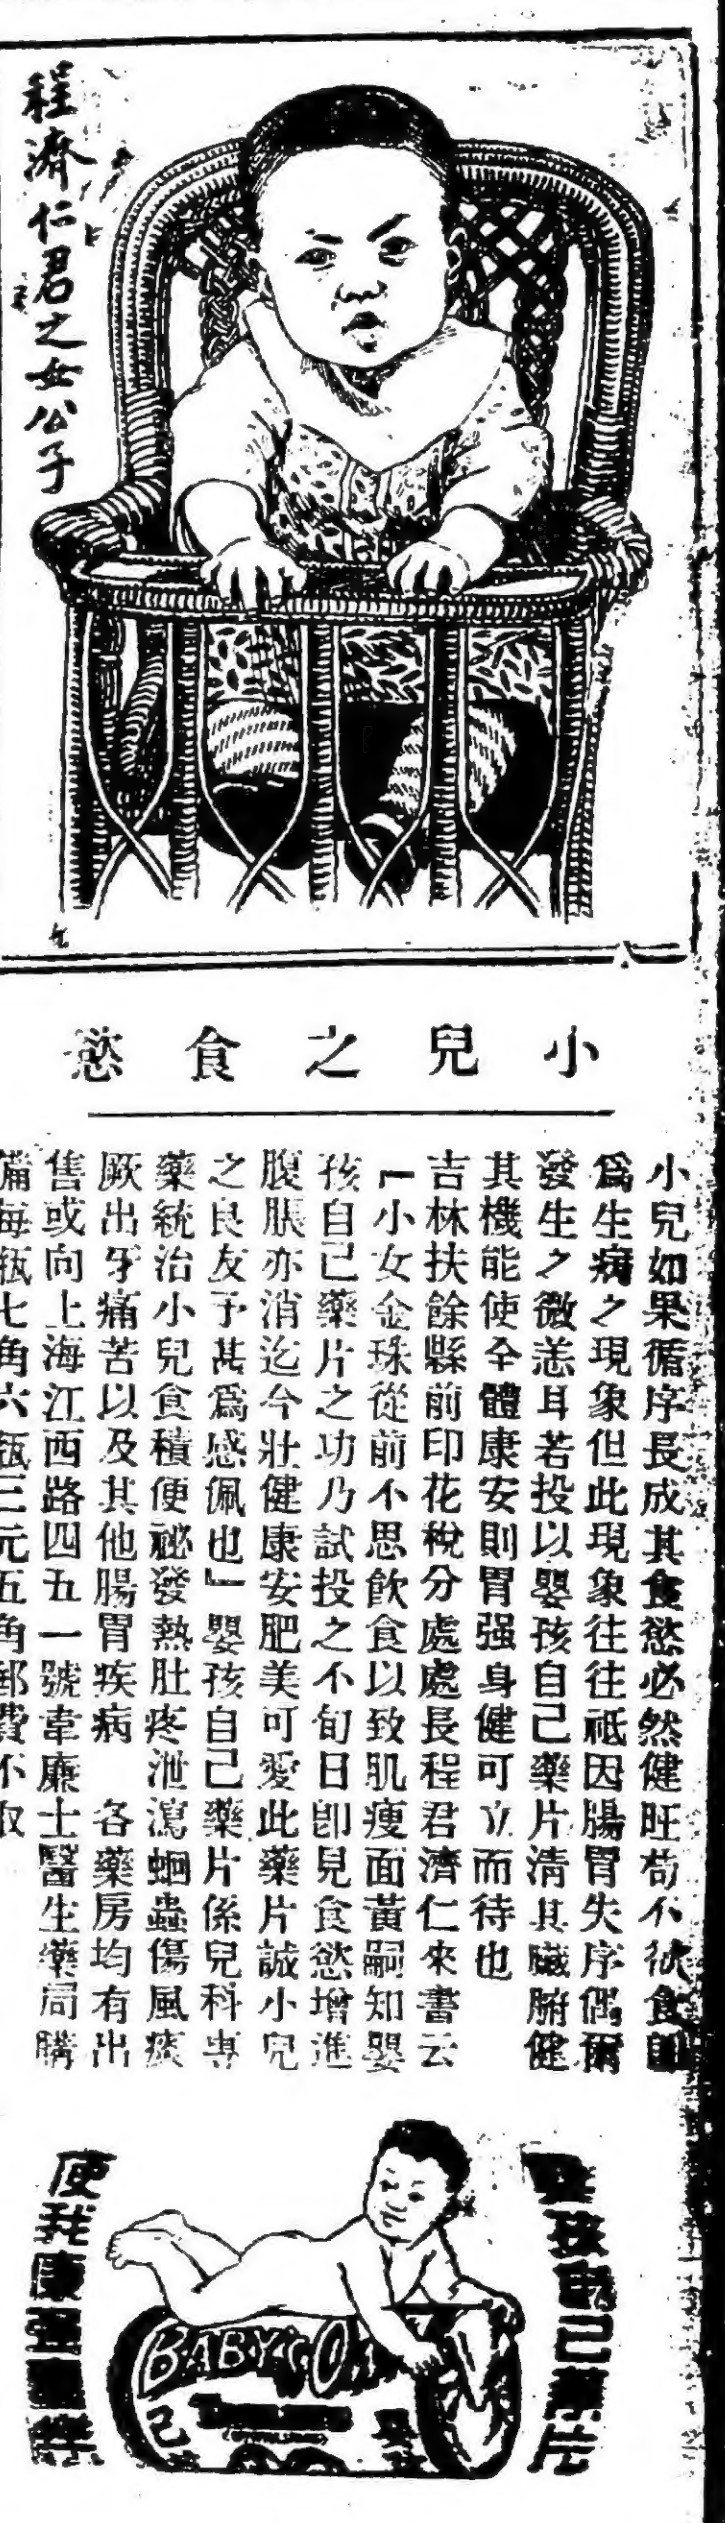 程濟仁君之女公子
小兒之食慾
小兒如果循序長成其食慾必然健旺苟不欲食卽
爲生病之現象但此現象往往祗因腸胃失序偶爾
發生之微恙耳若投以嬰孩自己藥片清其臟腑健
其機能使全體康安則胃强身健可立而待也
吉林扶餘縣前印花稅分處處長程君濟仁來書云
「小女金珠從前不思飲食以致肌瘦面黃嗣知嬰
孩自己藥片之功乃試投之不旬日卽見食慾增進
腹脹亦消迄今壯健康安肥美可愛此藥片誠小兒
之良友予甚爲感佩也」嬰孩自己藥片係兒科專
藥統治小兒食積便祕發熱肚疼泄瀉蛔蟲傷風痰
厥出牙痛苦以及其他腸胃疾病　各藥房均有出
售或向上海江西路四五一號韋廉士醫生藥局購
備每瓶七角六瓶三元五角郵費不取
嬰孩自己藥片
BABY'S OWN
TABLETS
己
嬰
使我康强快樂